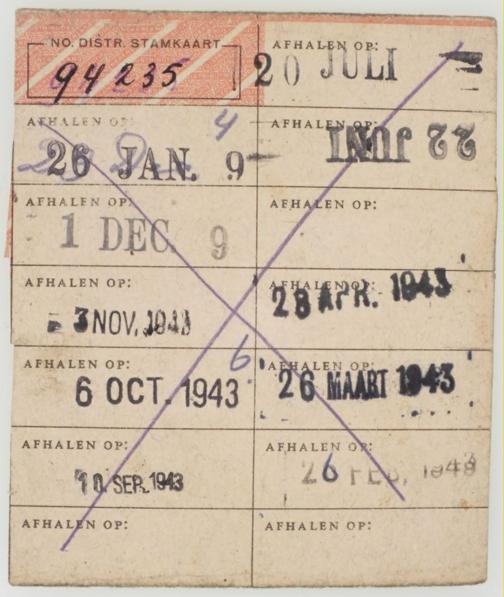 NO. DISTR. STAMKAART
94235
AFHALEN OP:
20 JULI
AFHALEN OP:
4
26 JAN. 9
AFHALEN OP:
22 JUNI
AFHALEN OP:
1 DEC. 9
AFHALEN OP:
AFHALEN OP:
3 NOV. 1943
AFHALEN OP:
28 APR. 1943
AFHALEN OP:
6
6 OCT. 1943
AFHALEN OP:
26 MAART 1943
AFHALEN OP:
10. SEP. 1943
AFHALEN OP:
26 FEB. 1943
AFHALEN OP:
AFHALEN OP: